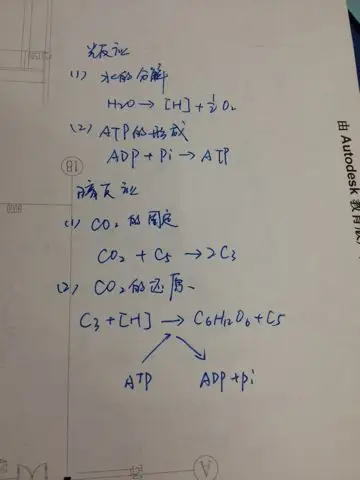 光反应
(1) 水的分解
H2O → [H] + ½O2
(2) ATP的形成
ADP + Pi → ATP
暗反应
(1) CO2的固定
CO2 + C5 → 2C3
(2) CO2的还原
C3 + [H] → C6H12O6 + C5
ATP ADP + Pi
由 Autodesk 教育版
1B
A